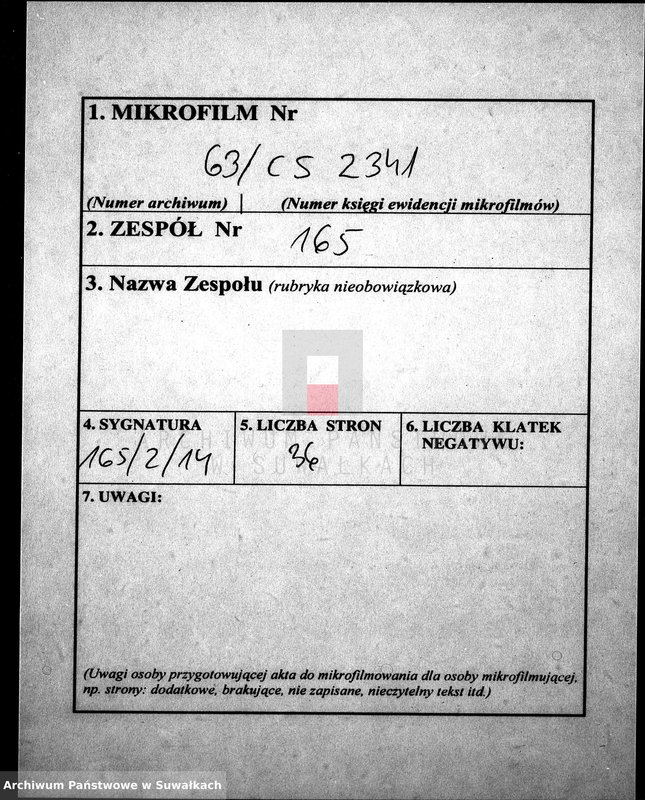 1. MIKROFILM Nr
63/CS 2341
(Numer archiwum) | (Numer księgi ewidencji mikrofilmów)
2. ZESPÓŁ Nr
165
3. Nazwa Zespołu (rubryka nieobowiązkowa)
4. SYGNATURA
165/2/14
5. LICZBA STRON
36
6. LICZBA KLATEK
NEGATYWU:
ARCHIWUM PAŃSTWOWE
W SUWAŁKACH
7. UWAGI:
(Uwagi osoby przygotowującej akta do mikrofilmowania dla osoby mikrofilmującej,
np. strony: dodatkowe, brakujące, nie zapisane, nieczytelny tekst itd.)
Archiwum Państwowe w Suwałkach